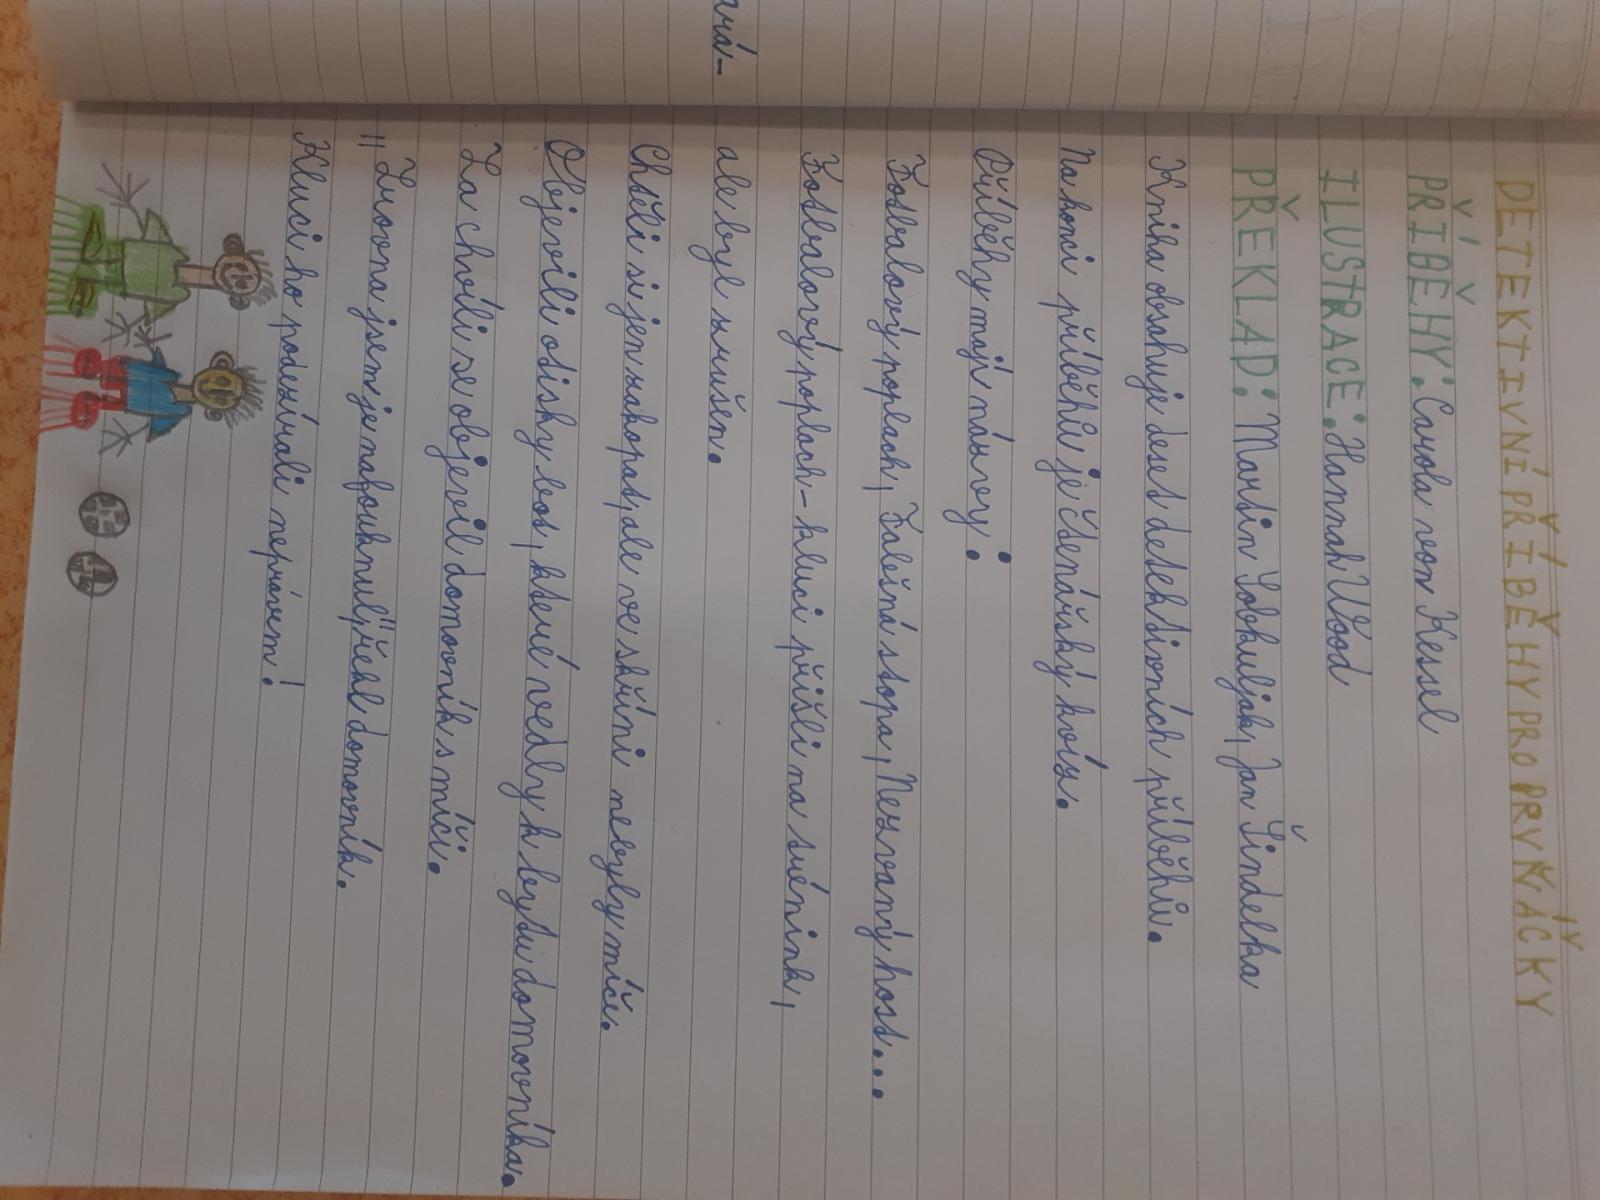 DETEKTIVNÍ PŘÍBĚHY PRO PRVŇÁČKY
PŘÍBĚHY: Carola von Kessel
ILUSTRACE: Hannah Wood
PŘEKLAD: Martin Sobkuljak, Jan Šindelka
Kniha obsahuje deset detektivních příběhů.
Na konci příběhů je čtenářský kvíz.
Příběhy mají názvy:
Fotbalový poplach, Falešná stopa, Nezvaný host...
Fotbalový poplach - kluci přišli na trénink,
ale byl zrušen.
Chtěli si jen zakopat, ale ve skříni nebyly míče.
Objevili otisky bot, které vedly k bytu domovníka.
Za chvíli se objevil domovník s míči.
„Zrovna jsem je nafouknul," řekl domovník.
Kluci ho podezírali neprávem!
ává-